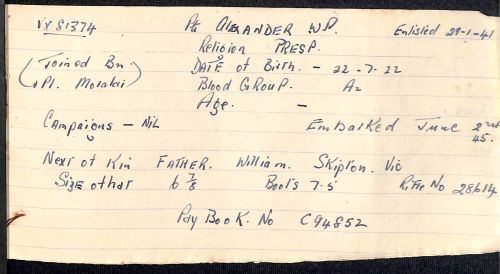 VX 81374 Pte ALEXANDER W.P. Enlisted 29-1-41
Religion PRESP.
(Joined Bn. DATE of Birth. - 22-7-22
at Pl. Morakai) Blood GROUP. A2
Age. -
Campaigns - NIL Embarked June 2nd 45.
Next of Kin FATHER. William. Skipton. Vic
Size of hat 6 7/8 Boots 7.5 Rifle No 28614
Pay Book. No C94852